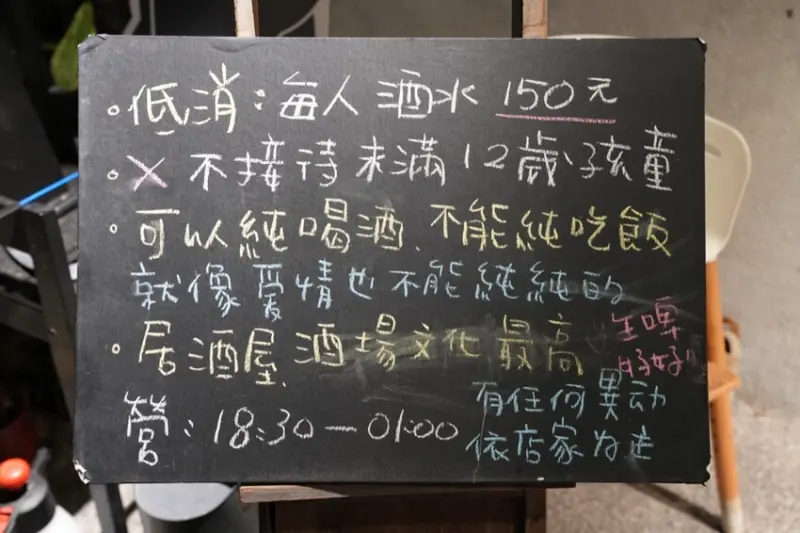 。低消:每人 酒水 150元
。X 不接待未滿12歲孩童
。可以純喝酒、不能純吃飯
就像愛情也不能純純的
。居酒屋、酒場文化 最高
生啤
好好"
有任何異动
依店家为主
營:18:30—01:00